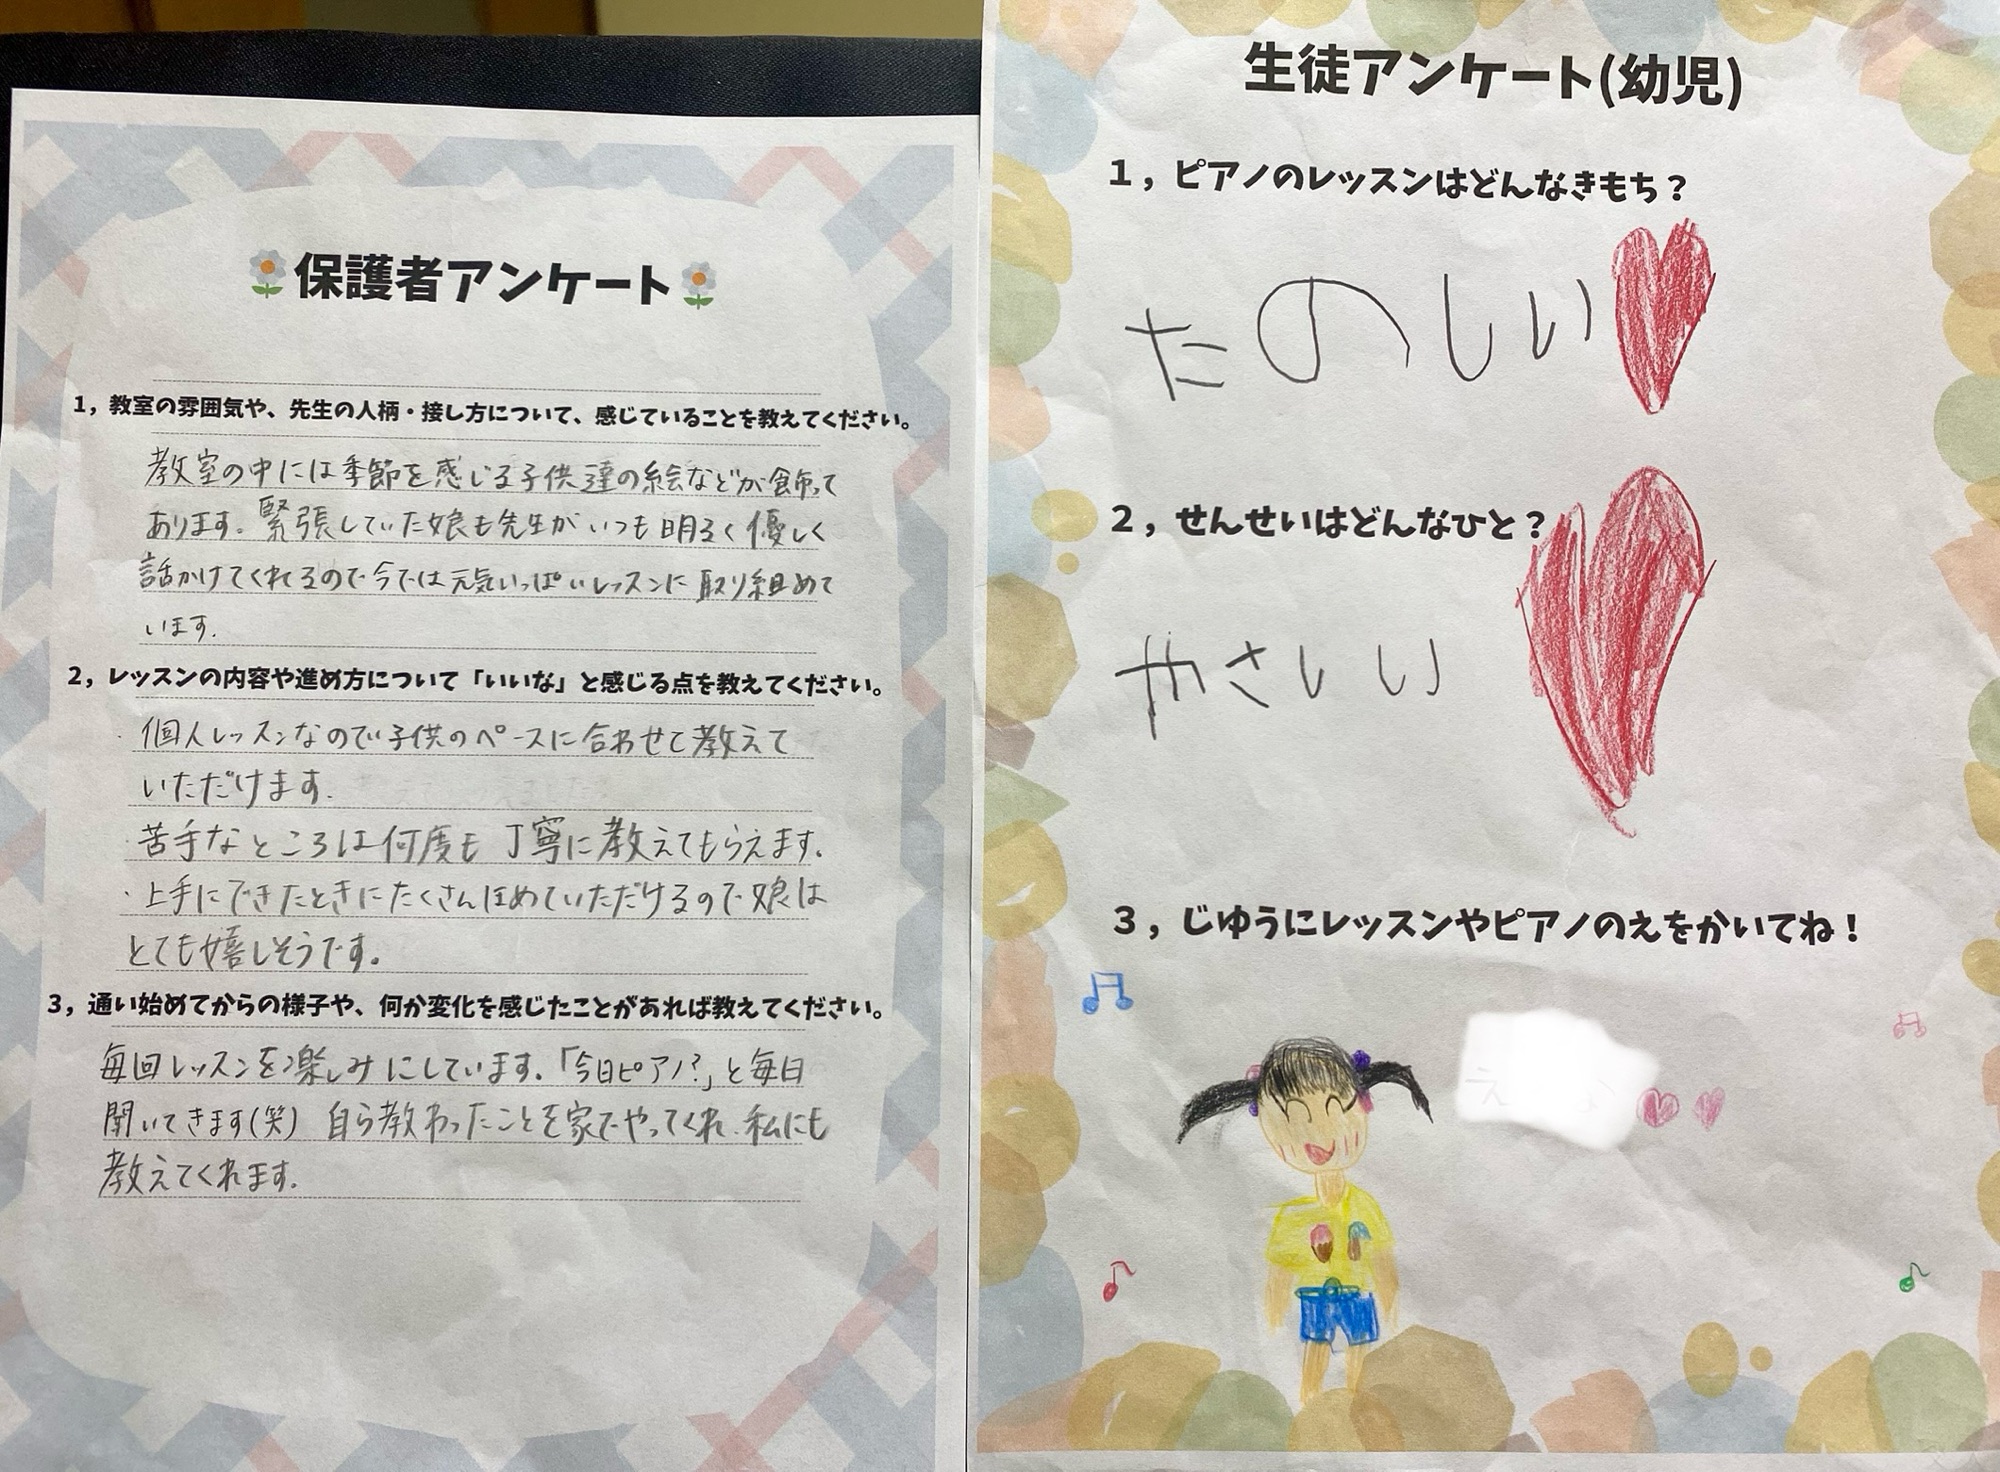 保護者アンケート
1，教室の雰囲気や、先生の人柄・接し方について、感じていることを教えてください。
教室の中には季節を感じる子供達の絵などが飾って
あります。緊張していた娘も先生がいつも明るく優しく
話かけてくれるので今では元気いっぱいレッスンに取り組めて
います。
2，レッスンの内容や進め方について「いいな」と感じる点を教えてください。
・個人レッスンなので子供のペースに合わせて教えて
いただけます。
・苦手なところは何度も丁寧に教えてもらえます。
・上手にできたときにたくさんほめていただけるので娘は
とても嬉しそうです。
3，通い始めてからの様子や、何か変化を感じたことがあれば教えてください。
毎回レッスンを楽しみにしています。「今日ピアノ?」と毎日
聞いてきます(笑) 自ら教わったことを家でやってくれ、私にも
教えてくれます。
生徒アンケート(幼児)
1，ピアノのレッスンはどんなきもち？
たのしい
2，せんせいはどんなひと？
やさしい
3，じゆうにレッスンやピアノのえをかいてね！